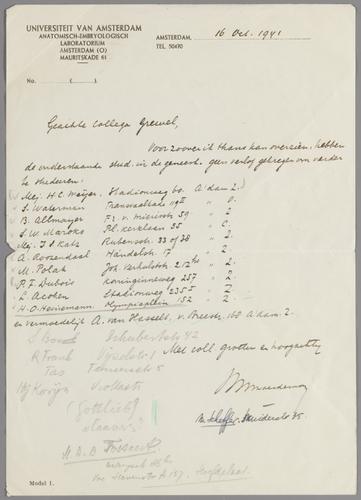 UNIVERSITEIT VAN AMSTERDAM
ANATOMISCH-EMBRYOLOGISCH
LABORATORIUM
AMSTERDAM (O)
MAURITSKADE 61
AMSTERDAM, 16 Oct. 1941
TEL. 50470
No. ( )
Geachte College Grewel,
Voor zoover ik thans kan overzien, hebben
de onderstaande stud. in de geneesk. geen verlof gekregen om verder
te studeren:
Mej. H.C. Meijer, Stadionweg 60. A'dam Z.
S. Waterman Transvaalkade 119 II " O.
B. Allmayer Fr. v. Mierisstr 59 " Z.
S.W. Maroko Pl. Kerklaan 35 " C.
Mej. J.S. Katz Rubensstr. 33 of 38 " Z.
A. Roozendaal Händelstr. 17 " Z.
M. Polak Joh. Verhulststr. 212 hs " Z.
P.F. Dubois Koninginneweg 257 " Z.
L. Acohen Stadionweg 235 " Z.
H.O. Heinemann Olympiaplein 152 " Z.
en vermoedelijk A. van Hasselt, v. Breestr. 168 A'dam Z.
Schubertstr 42
R Frank
Tas 5
Met coll. groeten en hoogachting
(Gottlieb?
Model 1.